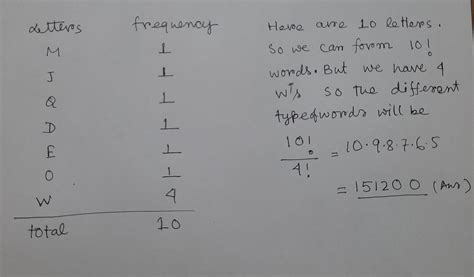 Letters frequency
M 1
J 1
Q 1
D 1
E 1
O 1
W 4
total 10
Here are 10 letters.
So we can form 10!
words. But we have 4
W's so the different
type of words will be
10!/4! = 10·9·8·7·6·5
= 151200 (Ans)